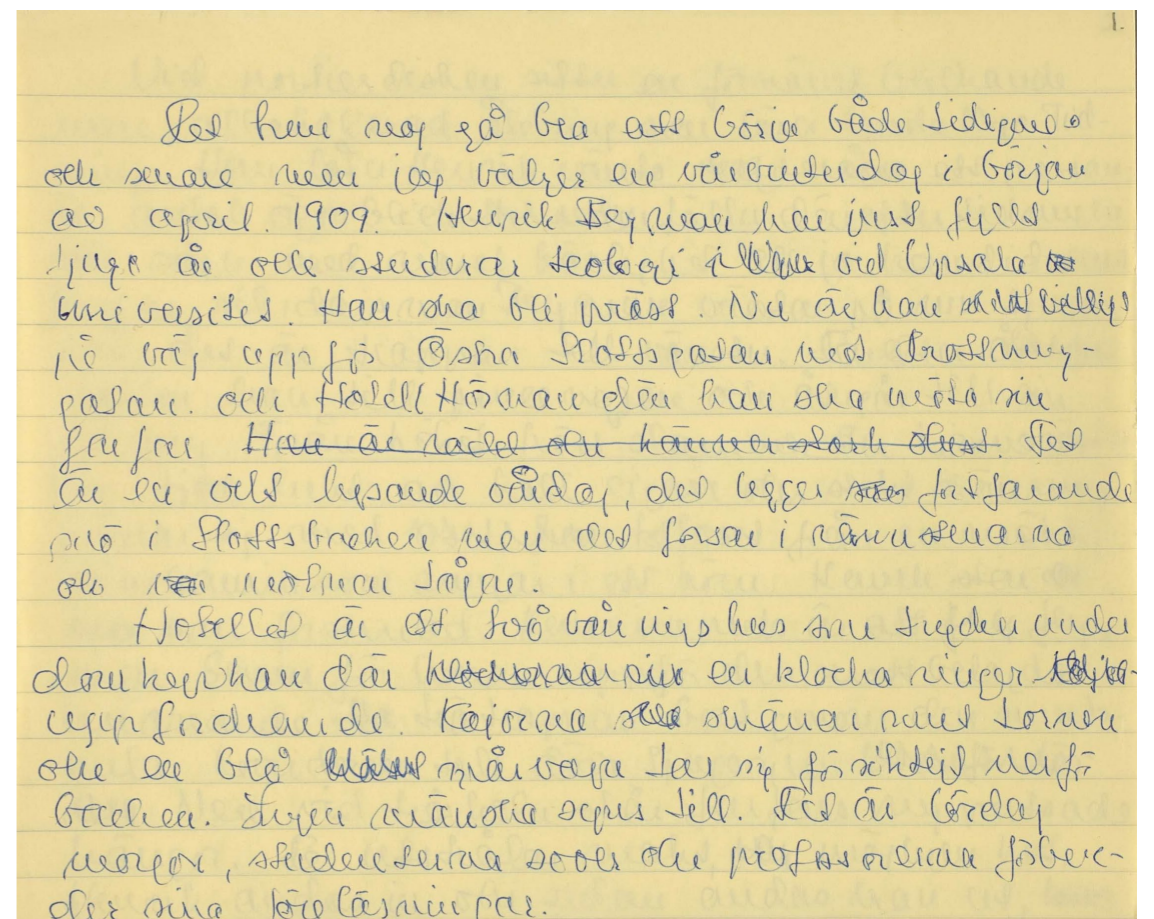 1.
Det kan nog gå bra att börja både tidigare
och senare men jag väljer en vårvinterdag i början
av april. 1909. Henrik Bergman har just fyllt
tjugo år och studerar teologi i vid Upsala
universitet. Han ska bli präst. Nu är han
på väg uppför Östra Slottsgatan mot Drottning-
gatan. och Hotell Hörnan där han ska möta sin
farfar Han är rädd och känner stark olust. Det
är en vårdag, det ligger fortfarande
snö i Slottsbacken men det forsar i rännstenarna
och molnen tågar.
Hotellet är ett två vånings hus som under
domkyrkan där en klocka ringer
uppfordrande. Kajorna runt tornen
och en blå spårvagn tar sig försiktigt nerför
backen. Ingen mänska synes till. Det är lördag
morgon, studenterna sover och professorerna förbere-
der sina föreläsningar.